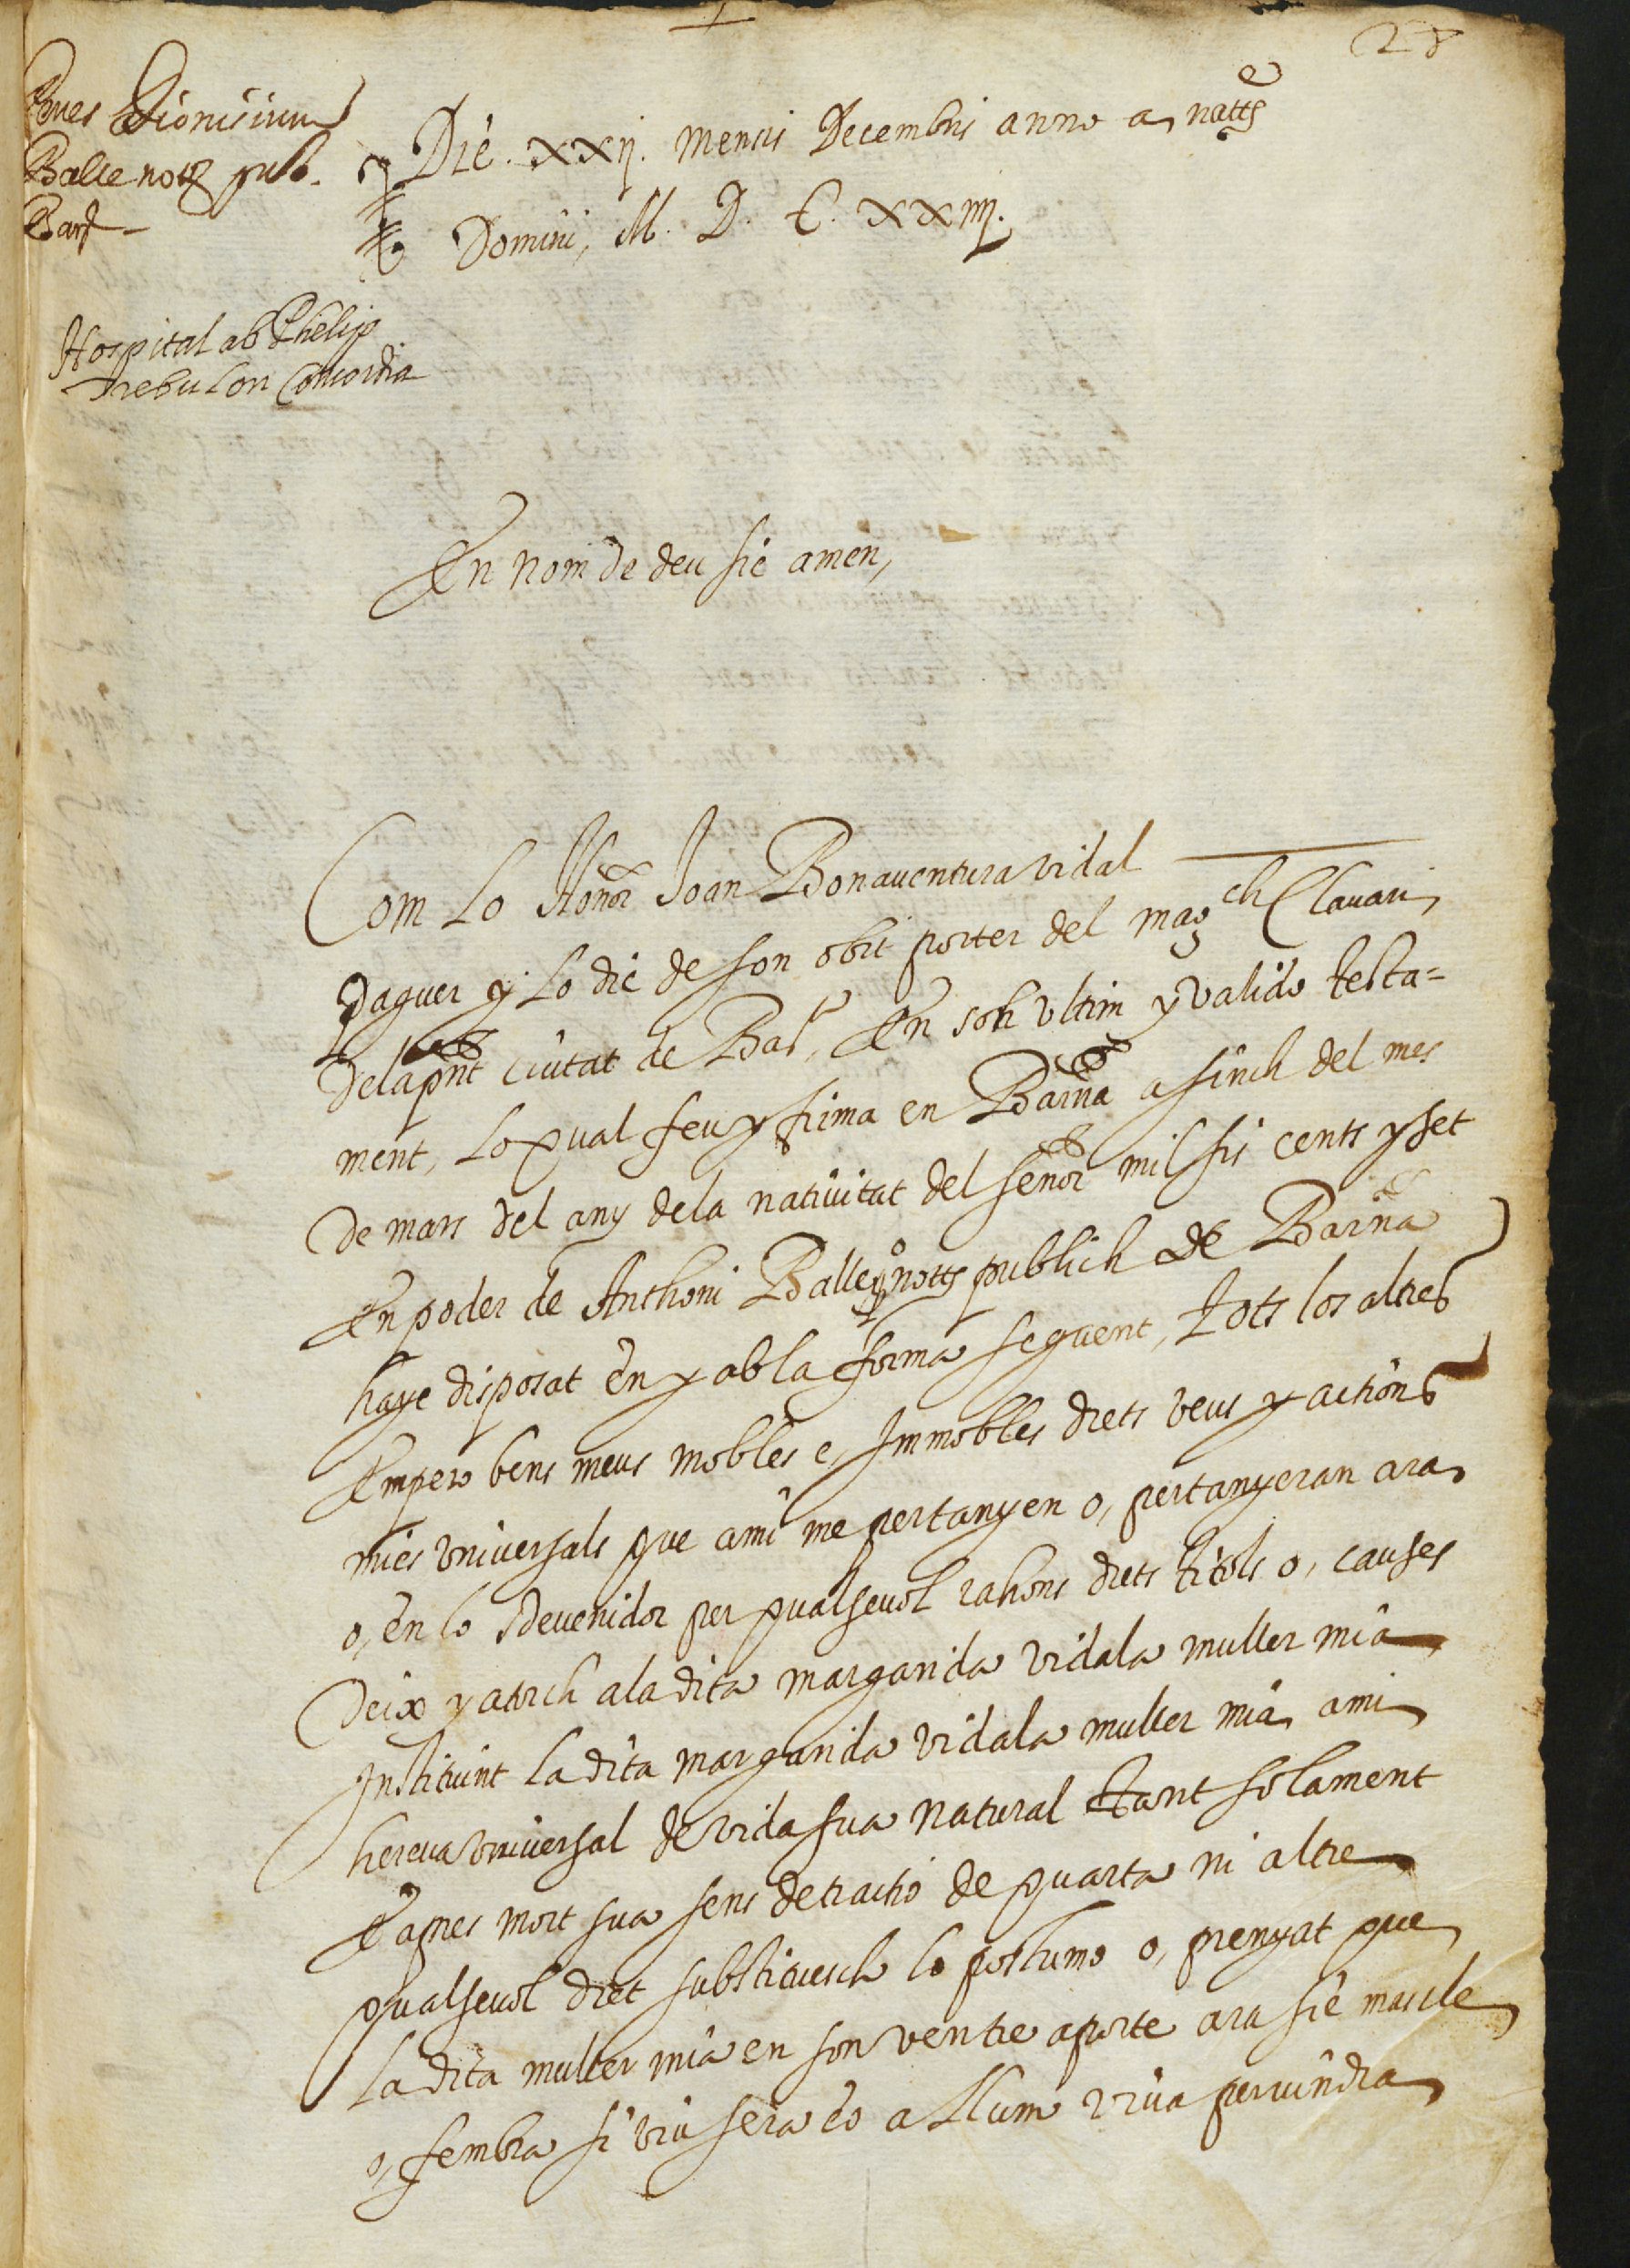 28
Dionisium
Balle not pub.
Bar
Die. xxij. mensis Decembris anno a natte
Domini, M. D. C. xxiiij.
Hospital ab Phelip
Trebulon Concordia
En nom de deu sie amen,
Com lo Honor Joan Bonaventura vidal
Daguer y lo die de son obit porter del magch Clavari
dela pnt ciutat de Bar, En son ultim y valido testa=
ment, lo qual feu y firma en Barña a sinch del mes
De mars del any dela nativitat del señor mil sis cents y set
En poder de Anthoni Balle notts publich de Barña
haye disposat en y ab la forma seguent, Tots los altres
Empero bens meus mobles e, Immobles drets veus y actions
mies universals que ami me pertanyen o, pertanyeran ara
o, en lo sdevenidor per qualsevol rahons drets titols o, causes
Deix y atorch ala dita margarida vidala muller mia
Instituint la dita margarida vidala muller mia ami
hereva universal de vida sua natural tant solament
E apres mort sua sens detractio de quarta ni altre
qualsevol dret substituesch lo postumo o, prenyat que
la dita muller mia en son ventre aporte ara sie mascle
o, fembra si viu sera eo a llum viva pervindra